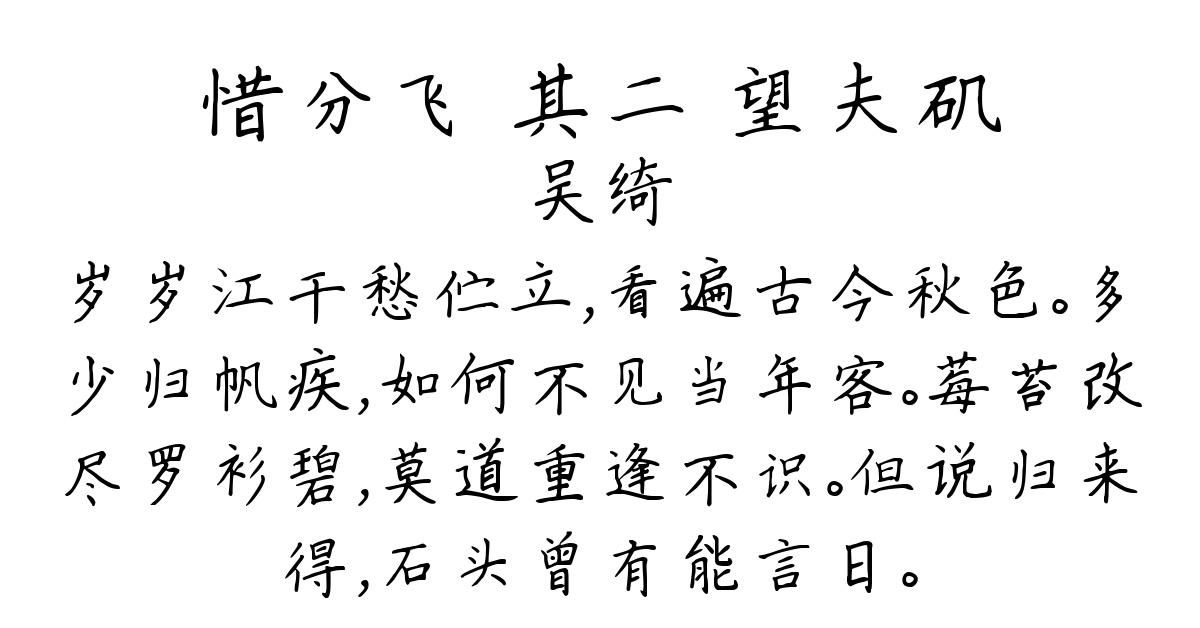 惜分飞 其二 望夫矶
吴绮
岁岁江干愁伫立,看遍古今秋色。多
少归帆疾,如何不见当年客。莓苔改
尽罗衫碧,莫道重逢不识。但说归来
得,石头曾有能言日。